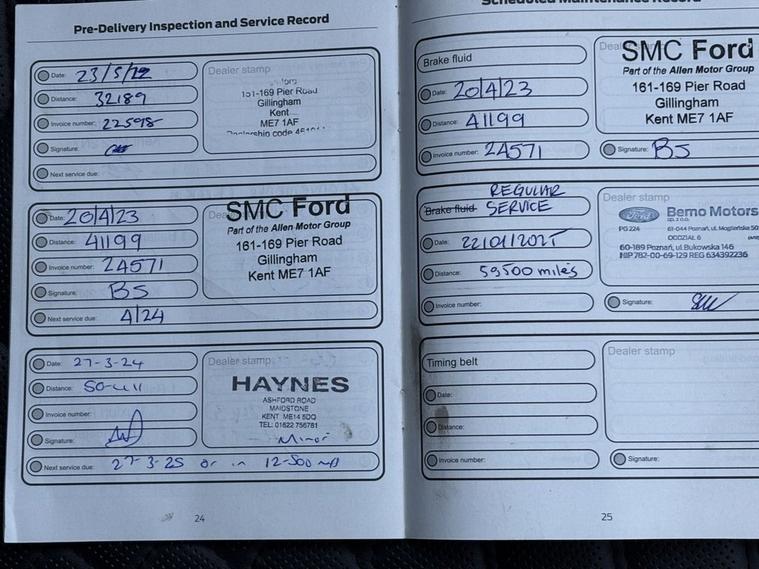 Pre-Delivery Inspection and Service Record
Date: 23/5/22
Distance: 32189
Invoice number: 22598
Signature:
Next service due:
Dealer stamp
161-169 Pier Road
Gillingham
Kent
ME7 1AF
Dealership code
Date: 20/4/23
Distance: 41199
Invoice number: 24571
Signature: BS
Next service due: 4/24
SMC Ford
Part of the Allen Motor Group
161-169 Pier Road
Gillingham
Kent ME7 1AF
Date: 27-3-24
Distance: 50-411
Invoice number:
Signature:
Next service due: 27-3-25 or in 12-500
Dealer stamp
HAYNES
ASHFORD ROAD
MAIDSTONE
KENT ME14 5DQ
TEL: 01622 756781
Minor
24
Scheduled Maintenance Record
Brake fluid
Date: 20/4/23
Distance: 41199
Invoice number: 24571
SMC Ford
Part of the Allen Motor Group
161-169 Pier Road
Gillingham
Kent ME7 1AF
Signature: BS
REGULAR
Brake fluid SERVICE
Date: 22/01/2025
Distance: 59500 miles
Invoice number:
Dealer stamp
Ford Bemo Motors
PG 224
61-044 Poznań, ul.
ODDZIAŁ 6
60-189 Poznań, ul. Bukowska 146
NIP 782-00-69-129 REG 634392236
Signature:
Timing belt
Date:
Distance:
Invoice number:
Dealer stamp
Signature:
25